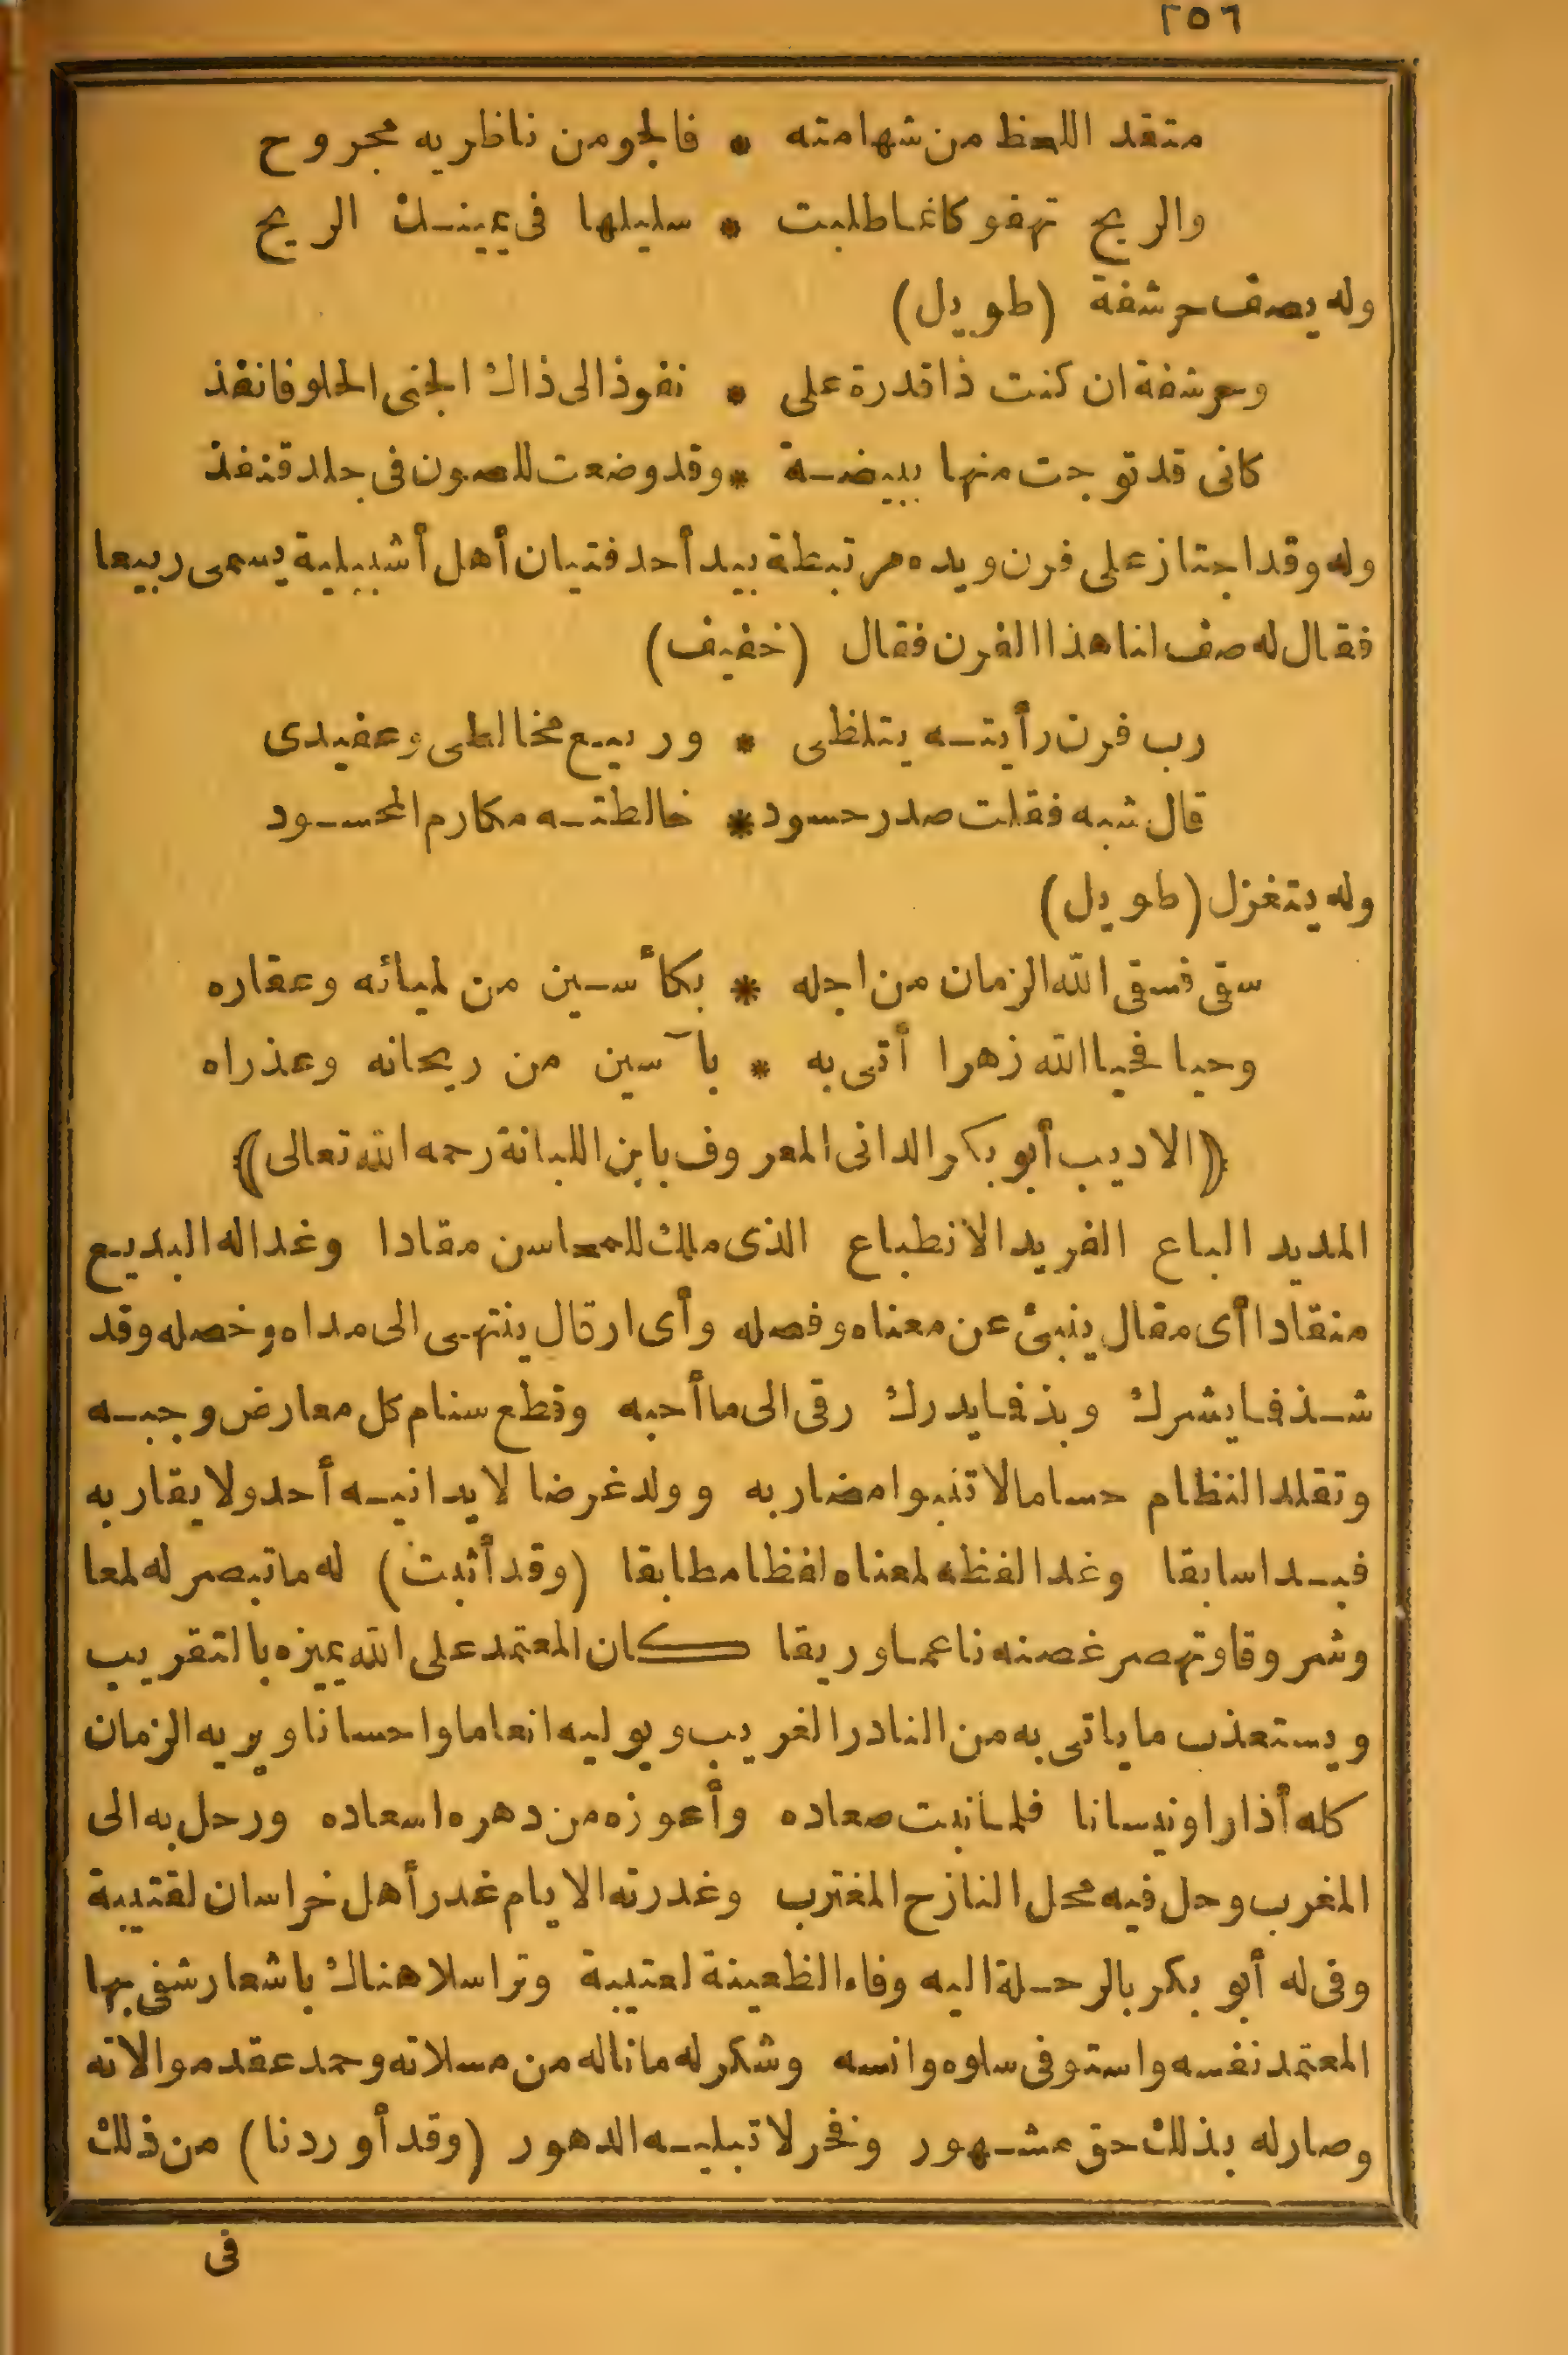 ٢٥٦
متقد اللحظ من شهامته * فالجو من ناظريه مجروح
والريح تهفو كانما طلبت * سليلها فى يمينك الريح
وله يصف حرشفة (طويل)
وحرشفة ان كنت ذا قدرة على * نفوذ الى ذاك الجنى الحلو فانفذ
كانى قد توجت منها ببيضة * وقد وضعت للصون فى جلد قنفذ
وله وقد اجتاز على فرن ويده مرتبطة بيد أحد فتيان أهل أشبيلية يسمى ربيعا
فقال له صف لنا هذا الفرن فقال (خفيف)
رب فرن رأيته يتلظى * وربيع مخالطى وعقيدى
قال شبه فقلت صدر حسود * خالطته مكارم المحسود
وله يتغزل (طويل)
سقى فسقى الله الزمان من اجله * بكأسين من لميائه وعقاره
وحيا فحيا الله زهرا أتى به * بآسين من ريحانه وعذراه
﴿الاديب أبو بكر الدانى المعروف بابن اللبانة رحمه الله تعالى﴾
المديد الباع الفريد الانطباع الذى ملك للمحاسن مقادا وغدا له البديع
منقادا أى مقال ينبئ عن معناه وفصله وأى ارقال ينتهى الى مداه وخصله وقد
شذ فما يشرك وبذ فما يدرك رقى الى ما أحبه وقطع سنام كل معارض وجبه
وتقلد النظام حساما لا تنبوا مضاربه وولد غرضا لا يدانيه أحد ولا يقاربه
فبدا سابقا وغدا لفظه لمعناه لفظا مطابقا (وقد أثبت) له ما تبصر له لمعا
وشروقا وتهصر غصنه ناعما وريقا كان المعتمد على الله يميزه بالتقريب
ويستعذب ما ياتى به من النادر الغريب ويوليه انعاما واحسانا ويريه الزمان
كله أذارا ونيسانا فلما نبت صعاده وأعوزه من دهره اسعاده ورحل به الى
المغرب وحل فيه محل النازح المغترب وغدرته الايام غدر أهل خراسان لقتيبة
وفى له أبو بكر بالرحلة اليه وفاء الظعينة لعتيبة وتراسلا هناك باشعار شفى بها
المعتمد نفسه واستوفى سلوه وانسه وشكر له ما ناله من مسلاته وحمد عقد موالاته
وصار له بذلك حق مشهور وفخر لا تبليه الدهور (وقد أوردنا) من ذلك
فى